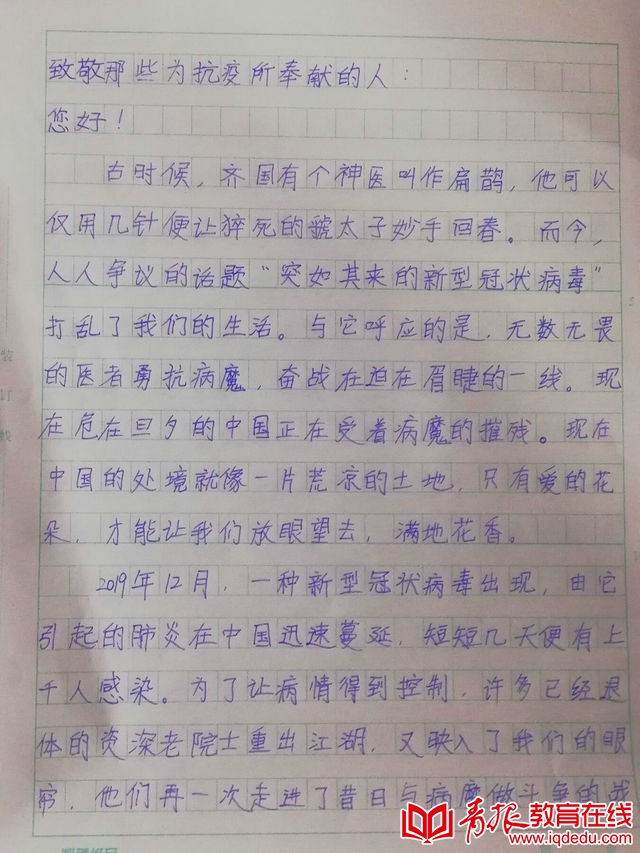 致敬那些为抗疫所奉献的人：
您好！
古时候，齐国有个神医叫作扁鹊，他可以
仅用几针便让猝死的虢太子妙手回春。而今，
人人争议的话题“突如其来的新型冠状病毒”
打乱了我们的生活。与它呼应的是，无数无畏
的医者勇抗病魔，奋战在迫在眉睫的一线。现
在危在旦夕的中国正在受着病魔的摧残。现在
中国的处境就像一片荒凉的土地，只有爱的花
朵，才能让我们放眼望去，满地花香。
2019年12月，一种新型冠状病毒出现，由它
引起的肺炎在中国迅速蔓延，短短几天便有上
千人感染。为了让病情得到控制，许多已经退
体的资深老院士重出江湖，又映入了我们的眼
帘，他们再一次走进了昔日与病魔做斗争的战
装
订
线
青报教育在线
www.iqdedu.com